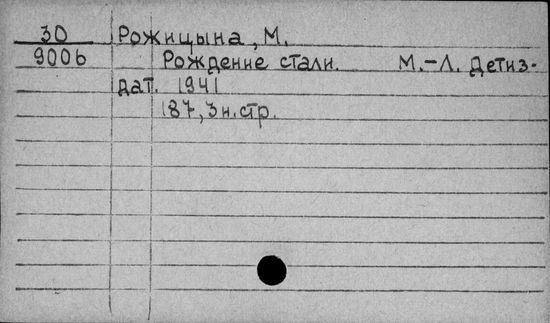 30 Рожицына, М.
9006 Рождение стали. М.-Л. Детиз-
дат. 1941
187, 3 н. стр.